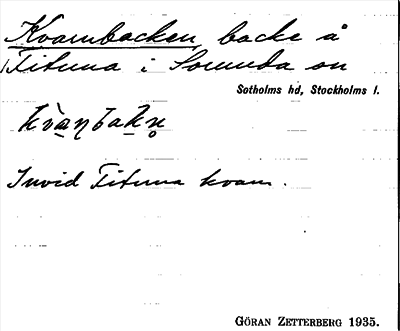 Kvarnbacken, backe å
Fituna i Sorunda sn
Sotholms hd, Stockholms l.
kvànbakn̥
Invid Fituna kvarn.
GÖRAN ZETTERBERG 1935.